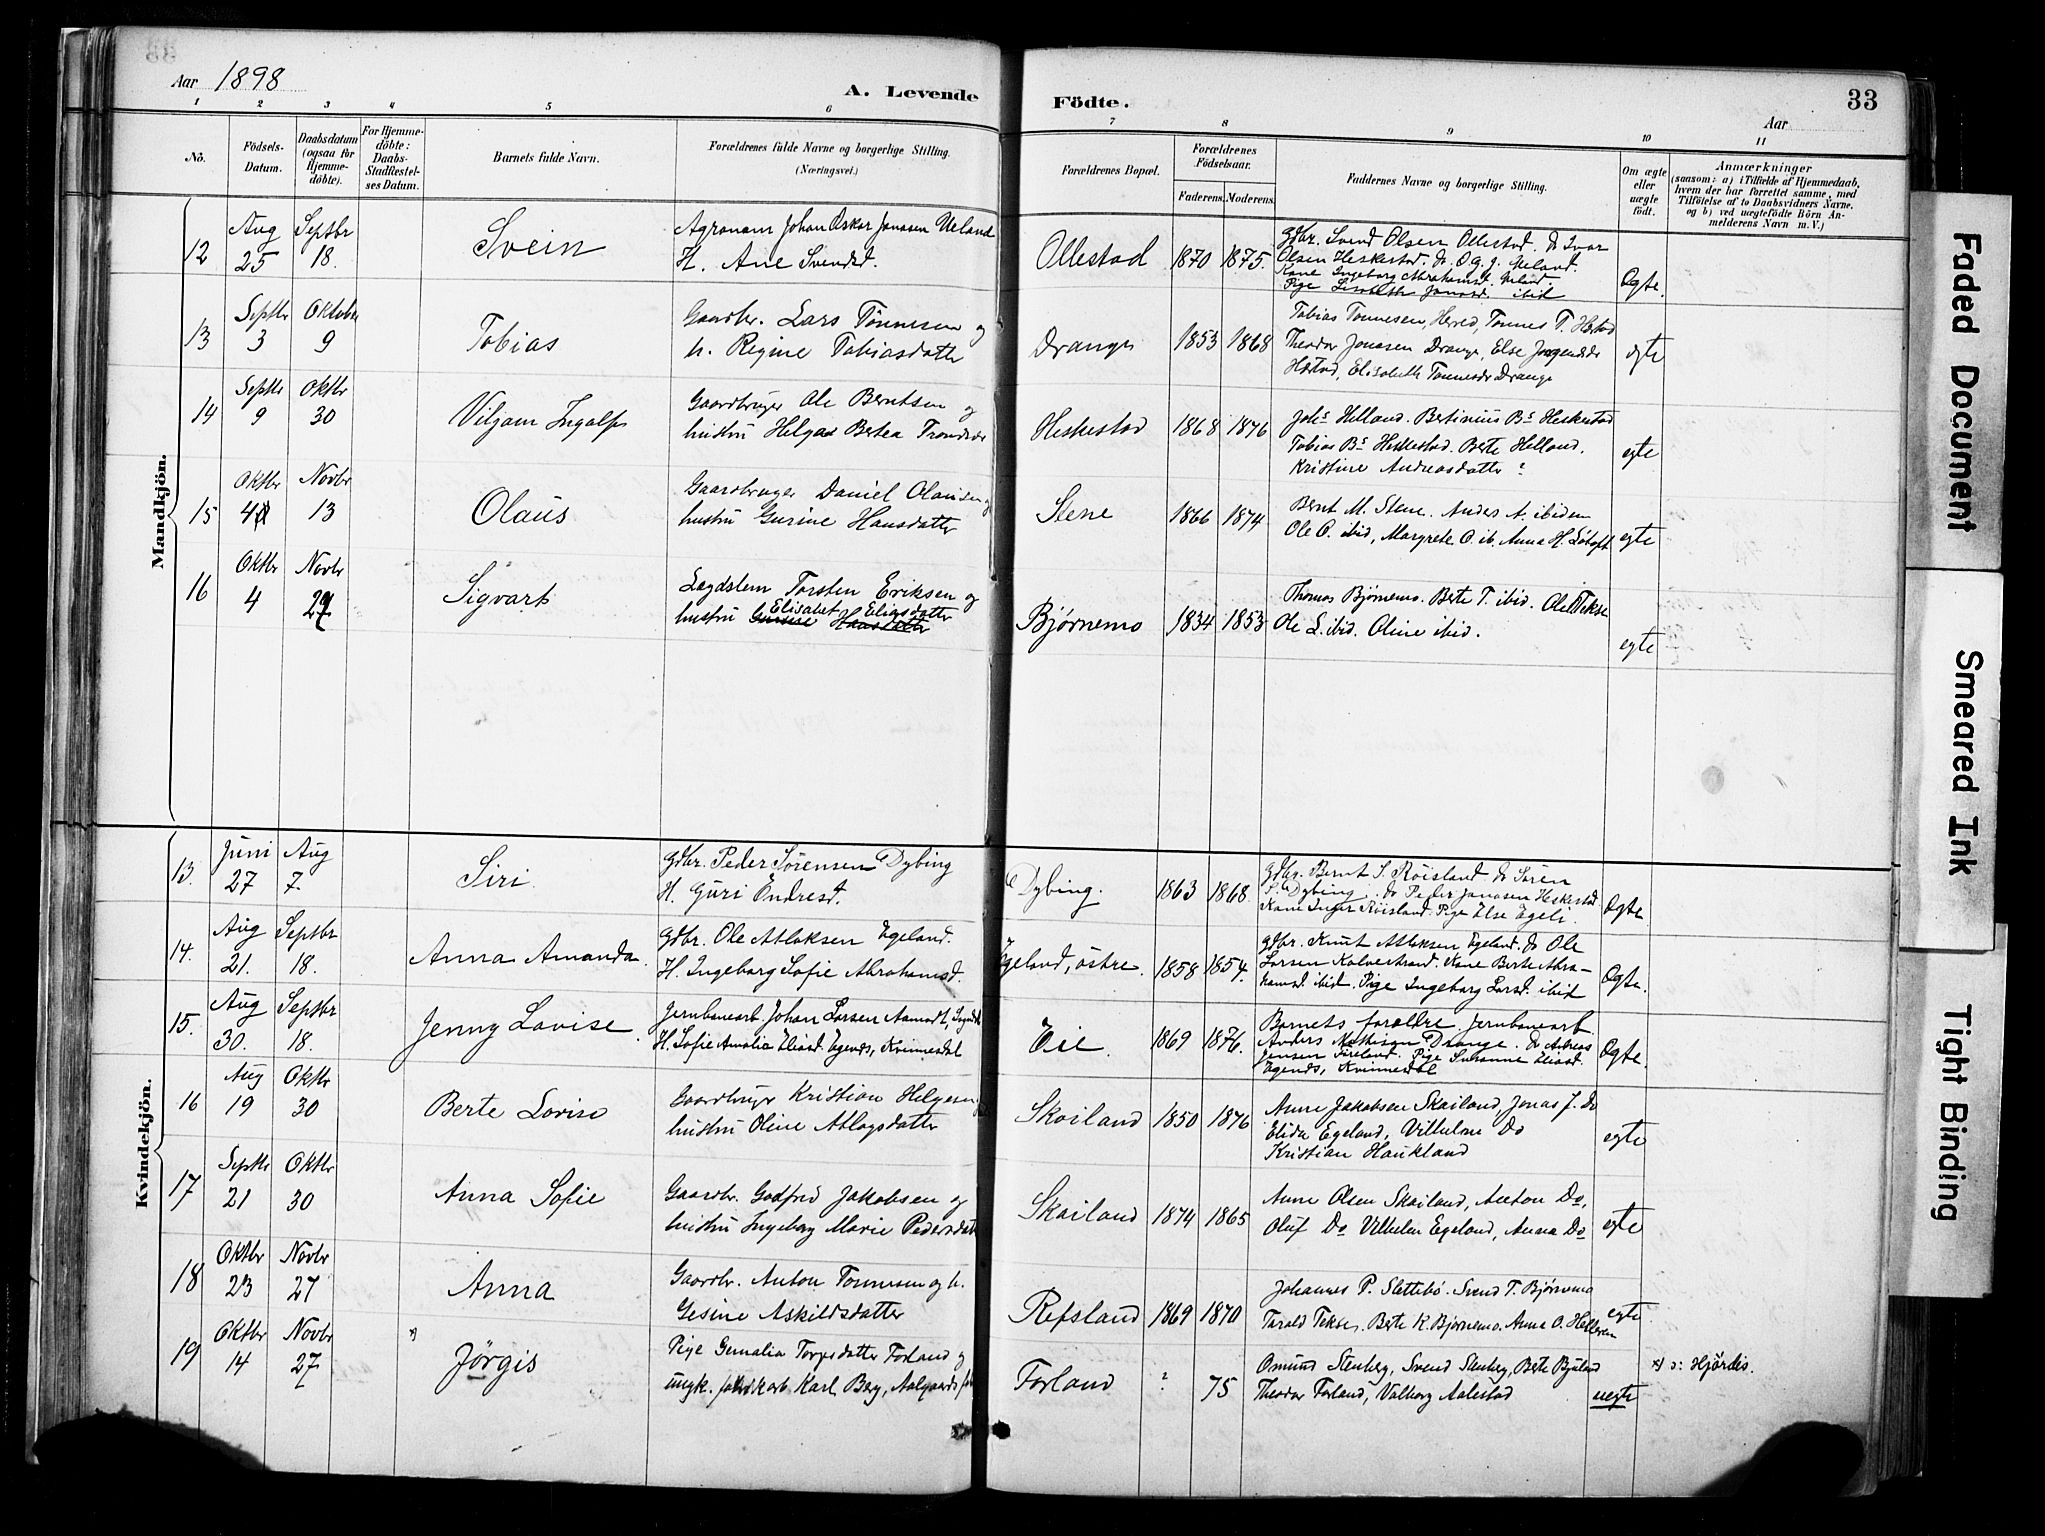 Aar 1898
A. Levende
Födte.
33
Aar
1 2 3 4 5 6 7 8 9 10 11
No.
Födsels-Datum.
Daabsdatum (ogsaa for Hjemme-döbte).
For Hjemme-döbte: Daabs-Stadfæstel-ses Datum.
Barnets fulde Navn.
Forældrenes fulde Navne og borgerlige Stilling.
(Næringsvei.)
Forældrenes Bopæl.
Forældrenes Födselsaar.
Faderens. Moderens.
Faddernes Navne og borgerlige Stilling.
Om ægte eller uægte födt.
Anmærkninger
(saasom: a) i Tilfælde af Hjemmedaab,
hvem der har forrettet samme, med
Tilföielse af to Daabsvidners Navne.
og b) ved uægtefödte Börn An-
melderens Navn m.V.)
Mandkjön.
12 Aug 25 Septbr 18. Svein
Agronom Johan Oskar Jonasen Ueland
H. Ane Svendsd.
Ollestad 1870 1875.
Gdbr. Svend Olsen Ollestad. Do Ivar
Olsen Heskestad. do. O. G. J. Ueland.
Kone Ingeborg Abrahamsd. Ueland.
Pige Lisabeth Jonasd. ibid
Ægte.
13 Septbr 3 Oktober 9 Tobias
Gaardbr. Lars Tönnesen og
h. Regine Tobiasdatter
Drange 1853 1868
Tobias Tonnesen, Hered, Tonnes T. Hæstad
Theodor Jonasen Drange, Else Jorgensdr
Hæstad, Elisabeth Tonnesdr Drange
egte
14 Septbr 9 Oktbr 30 Viljam Ingolf
Gaardbruger Ole Berntsen og
hustru Helga Bertea Trondsdr
Heskestad 1868 1876
Johs Helland. Bertinius Bs Heskestad
Tobias Bs Heskestad. Berte Helland.
Kristine Andreasdatter?
egte
15 Oktbr 4 Novbr 13 Olaus
Gaardbruger Daniel Olausen og
hustru Gurine Hansdatter
Stene 1866 1874
Bernt M. Stene. Anders A. ibidem
Ole O. ibid, Margrete O. ib. Anna H.
egte
16 Oktbr 4 Novbr 27 Sigvart
Lægdslem Torsten Eriksen og
Elisabet Eliasdatter
hustru Gurine Hansdatter
Bjørnemo 1834 1853
Thomas Bjørnemo. Berte T. ibid. Ole Tekse
Ole L. ibid. Oline ibid.
egte
Kvindekjön.
13. Juni 27 Aug 7. Siri.
Gdbr. Peder Sörensen Dybing
H. Guri Endresd.
Dybing. 1863 1868.
Gdbr. Bernt S. Röisland do Sören
S. Dybing. do Peder Jonasen Heskestad
Kone Inger Röisland. Pige Else Egeli.
Ægte.
14. Aug 21. Septbr 18. Anna Amanda.
Gdbr. Ole Atlaksen Egeland.
H. Ingeborg Sofie Abrahamsd.
Egeland, östre. 1858 1854.
Gdbr. Knut Atlaksen Egeland. do Ole
Larsen Kalvestrand. Kone Berte Abra-
hamsd. ibid. Pige Ingeborg Larsd. ibid
Ægte.
15. Aug 30. Septbr 18. Jenny Lovise.
Jernbanearb. Johan Larsen Aamodt,
H. Sofie Amalia Eliasd. Egends, Kvinnesdal
Eie. 1869 1876.
Barnets forældre. Jernbanearb.
Anders Mathisen Drange. do Andreas
Jensen Pige Susanne Eliasd.
Egends, Kvinnesdal
Ægte.
16 Aug 19 Oktbr 30 Berte Lovise
Gaardbruger Kristian Helgesen
hustru Oline Atlagsdatter
Skailand 1850 1876
Anne Jakobsen Skailand, Jonas J. Do
Elida Egeland, Vilhelm Do
Kristian Haukland
egte
17 Septbr 21 Oktbr 30 Anna Sofie
Gaardbr. Godfred Jakobsen og
hustru Ingeborg Marie Pedersdatter
Skailand 1874 1865
Anne Olsen Skailand, Anton Do,
Oluf Do Vilhelm Egeland, Anna Do
egte
18 Oktbr 23 Novbr 27 Anna
Gaardbr. Anton Tonnesen og h.
Gesine Askildsdatter
Refsland 1869 1870
Johannes P. Slettebö. Svend T. Bjørnemo
Tarald Tekse, Berte K. Bjørnemo. Anna O. Helleren
egte
19 Oktbr 14 Novbr 27 *) Jörgis
Pige Gemalia Torgersdatter Forland og
ungk. Karl Berg, Aalgaards
Forland ? 75
Omund Stenberg, Svend Stenberg, Berte Bjuland
Theodor Forland, Valborg Aalestad
uegte
*) ɔ: Hjördis.
Faded Document
Smeared Ink
Tight Binding